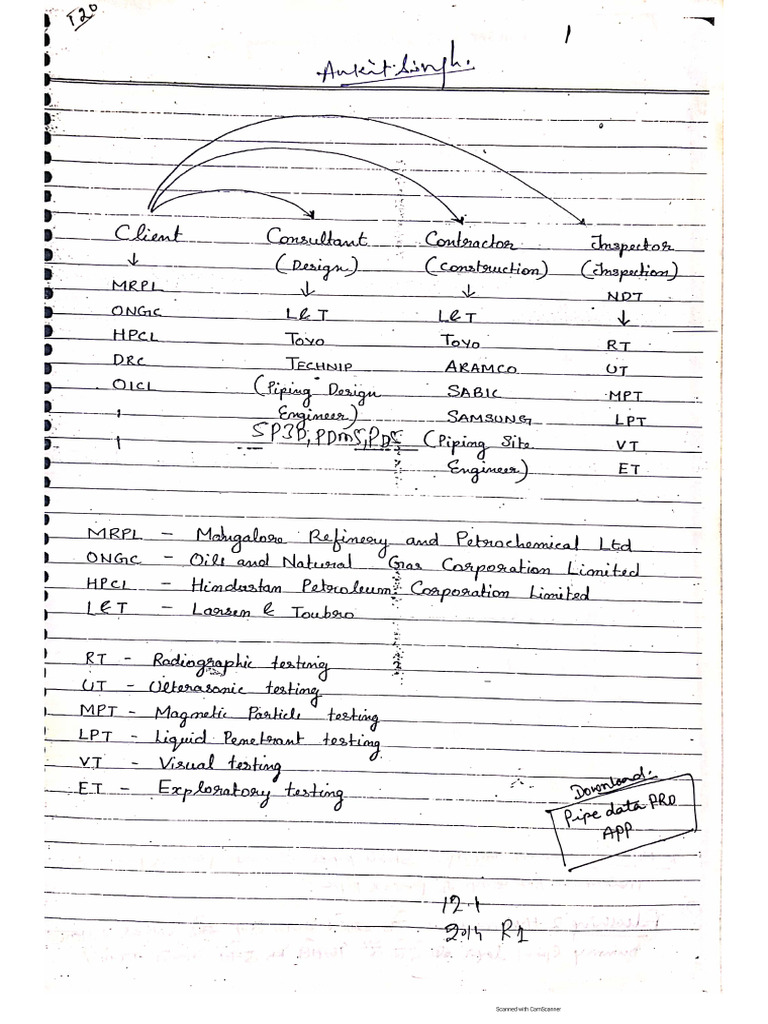 T20
1
Ankit Singh.
Client Consultant Contractor Inspector
(Design) (Construction) (Inspection)
MRPL NDT
ONGC L&T L&T
HPCL TOYO TOYO RT
DRC TECHNIP ARAMCO UT
OICL (Piping Design SABIC MPT
Engineer) SAMSUNG LPT
SP3D, PDMS, PDS (Piping Site VT
Engineer) ET
MRPL - Mangalore Refinery and Petrochemical Ltd
ONGC - Oils and Natural Gas Corporation Limited
HPCL - Hindustan Petroleum Corporation Limited
L&T - Larsen & Toubro
RT - Radiographic testing
UT - Ulterasonic testing
MPT - Magnetic Particle testing
LPT - Liquid Penetrant testing
VT - Visual testing
ET - Exploratory testing
Download:
Pipe data PRO
APP
12.1
2014 R1
Scanned with CamScanner